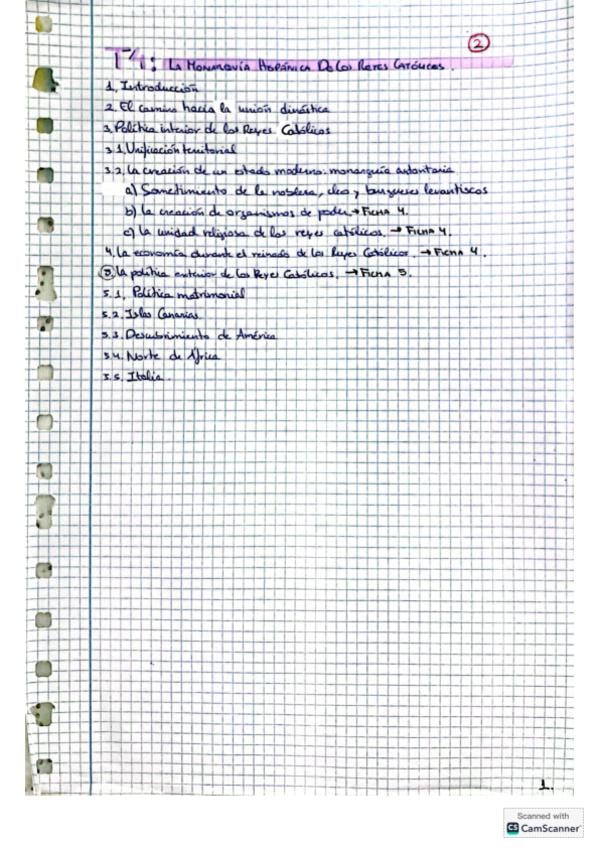 2
T4: LA MONARQUÍA HISPÁNICA DE LOS REYES CATÓLICOS.
1. Introducción
2. El camino hacia la unión dinástica
3. Política interior de los Reyes Católicos
3.1. Unificación territorial
3.2. La creación de un estado moderno: monarquía autoritaria
a) Sometimiento de la nobleza, clero y burgueses levantiscos
b) La creación de organismos de poder. → FICHA 4.
c) La unidad religiosa de los reyes católicos. → FICHA 4.
4. La economía durante el reinado de los Reyes Católicos. → FICHA 4.
5 La política exterior de los Reyes Católicos. → FICHA 5.
5.1. Política matrimonial
5.2. Islas Canarias
5.3. Descubrimiento de América
5.4. Norte de África
5.5. Italia.
1.
Scanned with
CS CamScanner